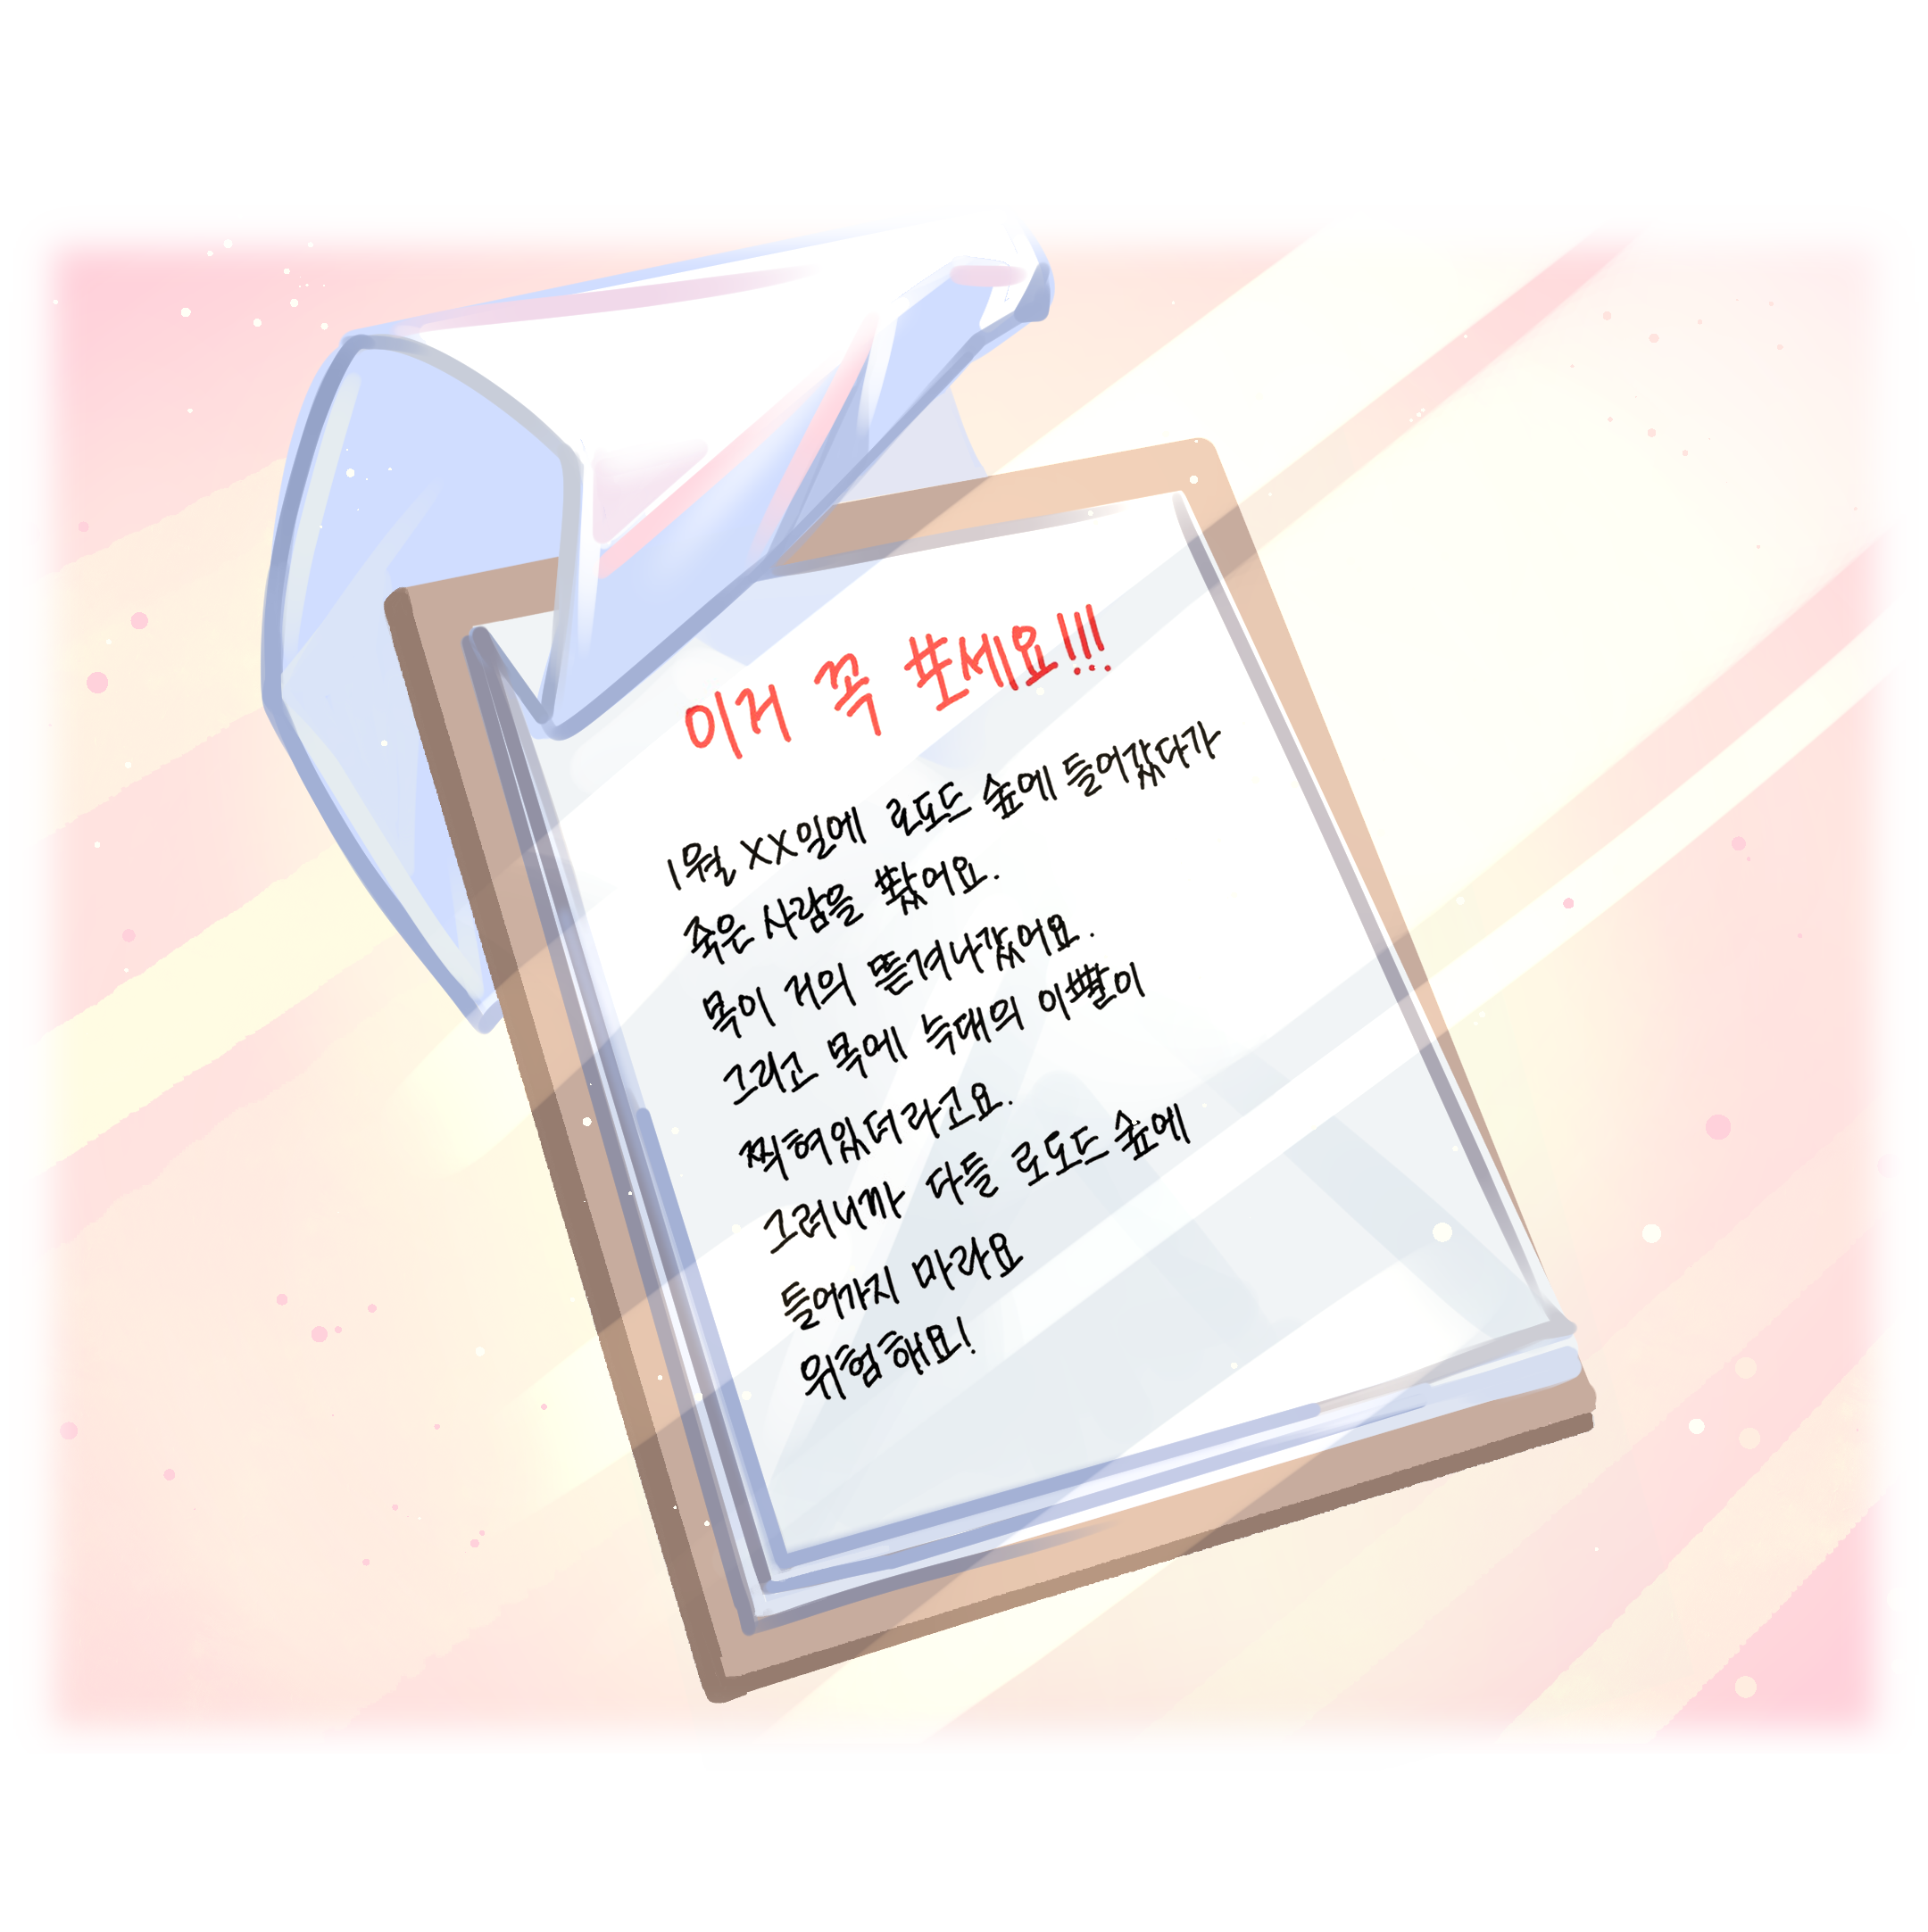 이거 꼭 보세요!!!
1월 XX일에 로도드 숲에 들어갔다가
죽은 사람을 봤어요.
목이 거의 뜯겨나갔어요.
그리고 목에 늑대의 이빨이
찍혀있더라고요.
그러니까 다들 로도드 숲에
들어가지 마라요
위험해요!